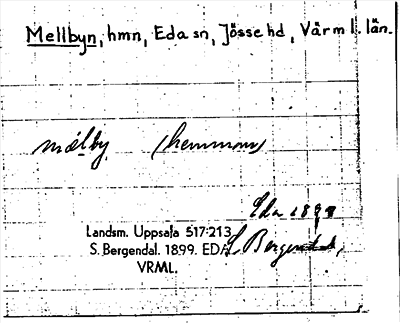 Mellbyn, hmn, Eda sn, Jösse hd, Värml. län.
mälby (hemman)
Eda 1899
Landsm. Uppsala 517:213
S. Bergendal. 1899. EDA S. Bergendal,
VRML.